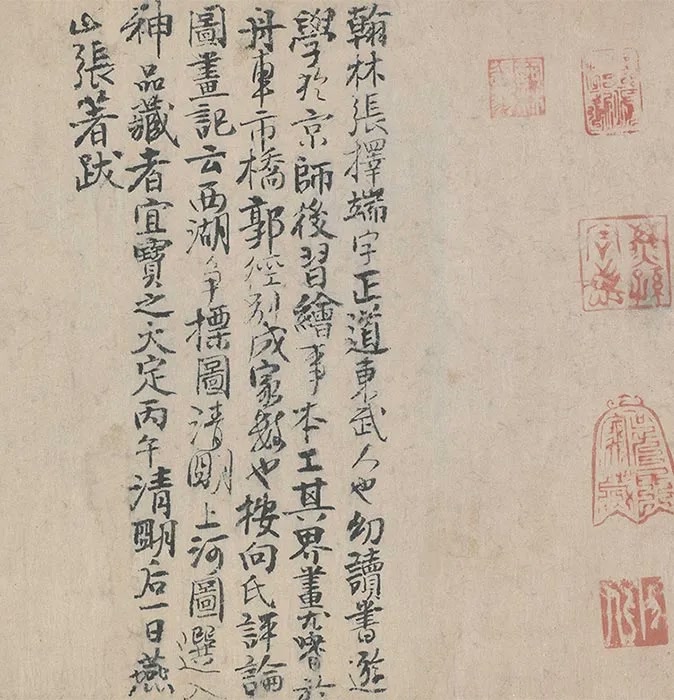 翰林張擇端字正道東武人也幼讀書遊
學於京師後習繪事本工其界畫尤嗜於
舟車市橋郭徑別成家數也按向氏評論
圖畫記云西湖争標圖清明上河圖選入
神品藏者宜寶之大定丙午清明后一日燕
山張著跋